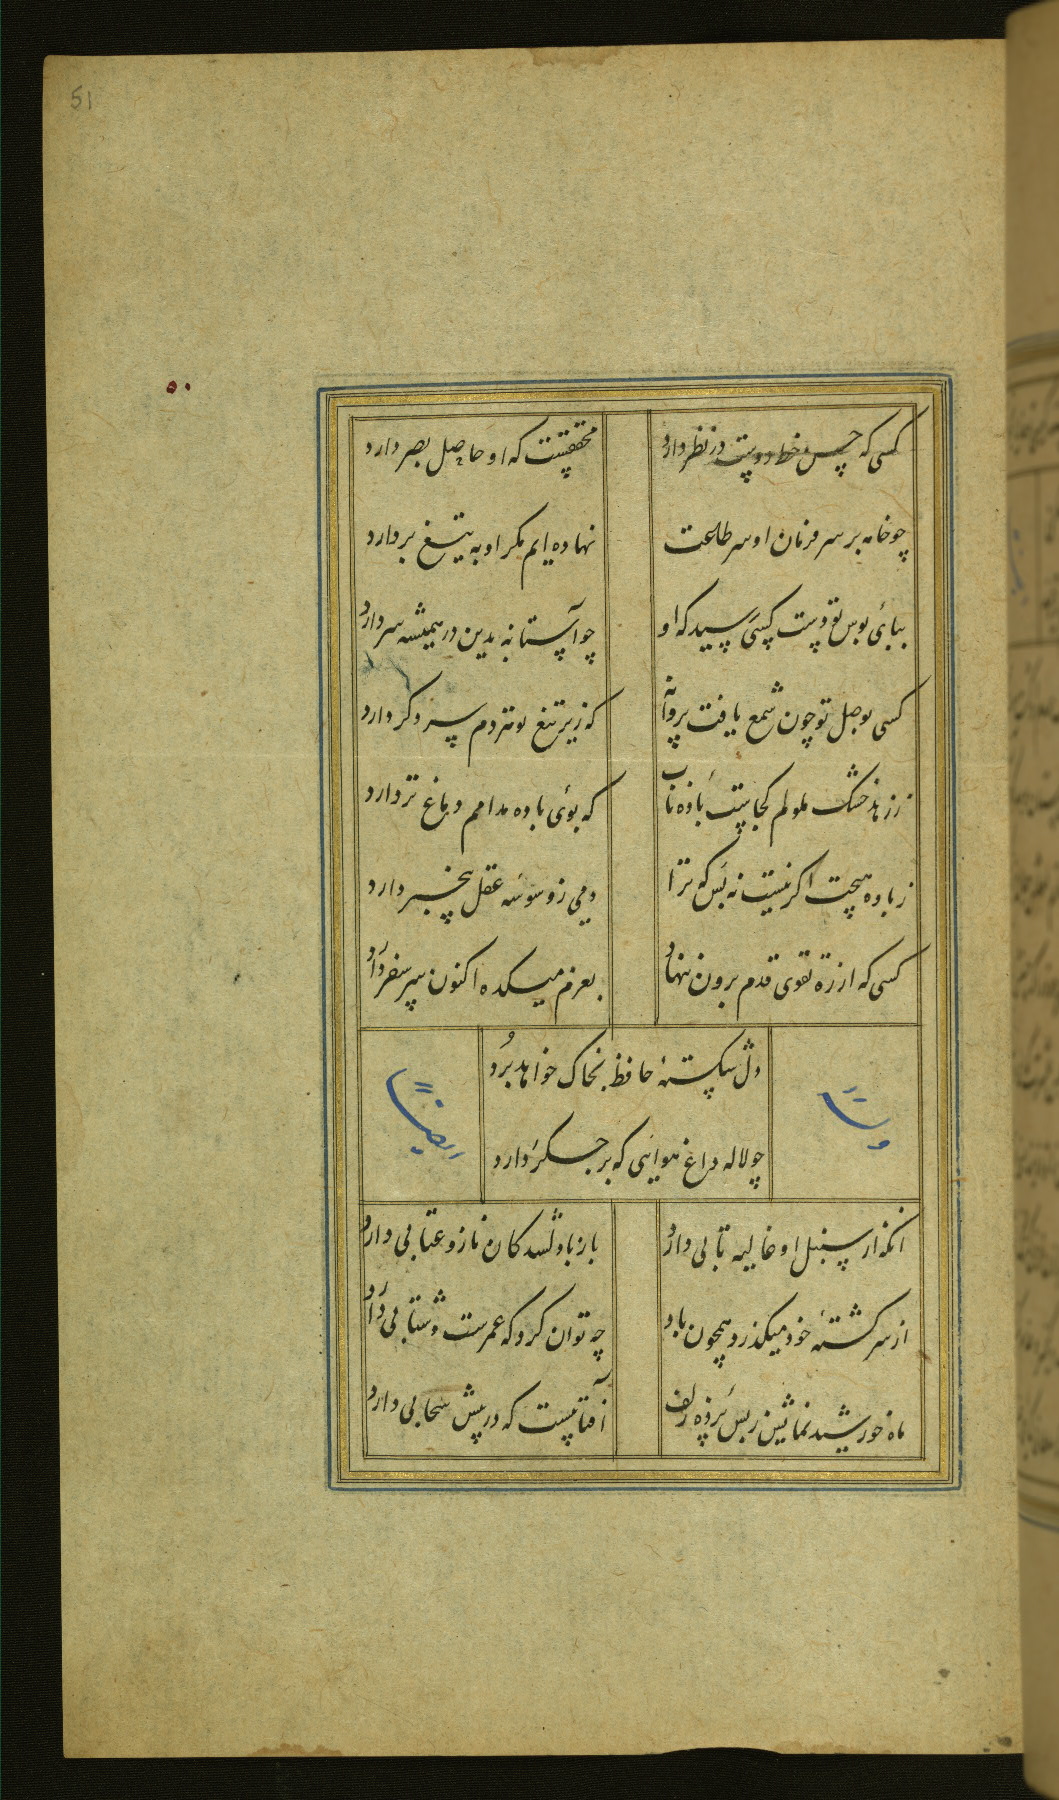 51
۵۰
کسی که حسن خط دوست در نظر دارد
محققست که او حاصل بصر دارد
چو خامه بر سر فرمان او سر طاعت
نهاده ایم مگر او به تیغ بردارد
بپای بوس تو دست کسی رسید که او
چو آستانه بدین در همیشه سر دارد
کسی بوصل تو چون شمع یافت پروانه
که زیر تیغ تو هر دم سر دگر دارد
ز زهد خشک ملولم کجاست باده ناب
که بوی باده مدامم دماغ تر دارد
ز باده هیچت اگر نیست نه بس که ترا
دمی ز وسوسه عقل بیخبر دارد
کسی که از ره تقوی قدم برون ننهاد
بعزم میکده اکنون سر سفر دارد
دل شکسته حافظ بخاک خواهد برد
چو لاله داغ هوایی که بر جگر دارد
ایضاً
آنکه از سنبل او غالیه تابی دارد
باز با دلشدگان ناز و عتابی دارد
از سر کشته خود میگذرد همچون باد
چه توان کرد که عمرست و شتابی دارد
ماه خورشید نماش ز پس پرده زلف
آفتابیست که در پیش سحابی دارد